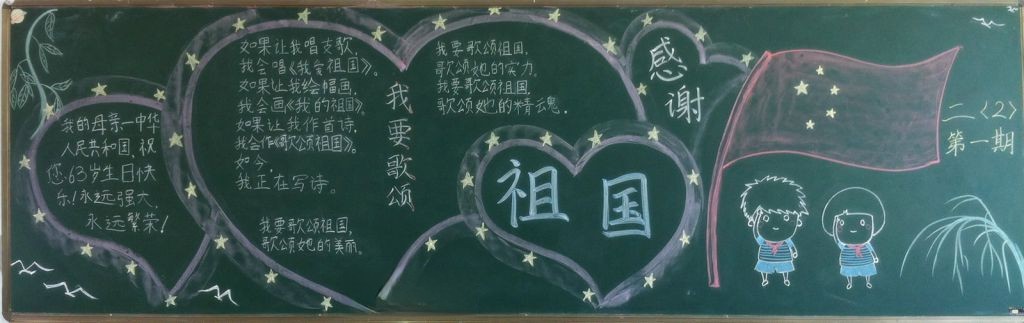 我的母亲—中华
人民共和国,祝
您63岁生日快
乐!永远强大,
永远繁荣!
如果让我唱支歌,
我会唱《我爱祖国》。
如果让我绘幅画,
我会画《我的祖国》
如果让我作首诗,
我会作《歌颂祖国》。
如今,
我正在写诗。
我要歌颂祖国,
歌颂她的美丽。
我要歌颂
我要歌颂祖国,
歌颂她的实力。
我要歌颂祖国,
歌颂她的精魂。
感谢
祖国
二〈2〉
第一期